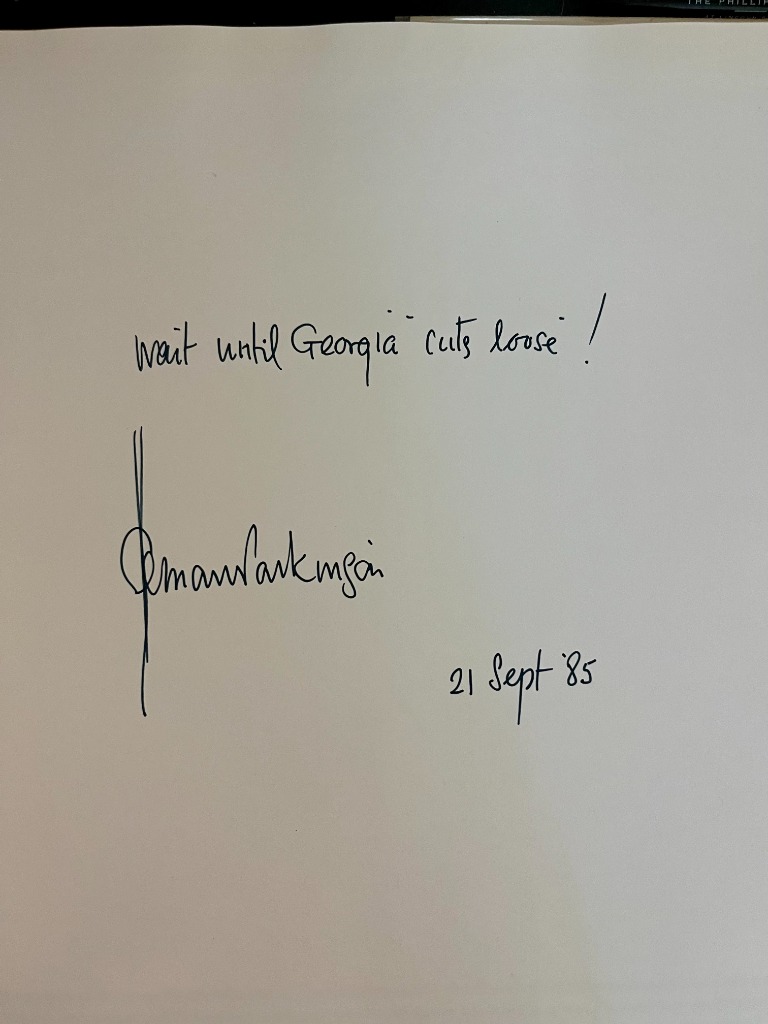 THE PHILLIP
wait until Georgia "cuts loose"!
Norman Parkinson
21 Sept '85